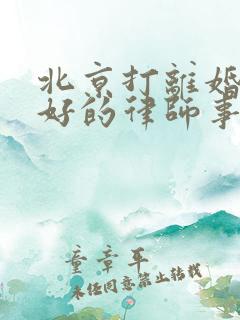 北京打離婚
好的律師事
童章平
未经同意禁止转载